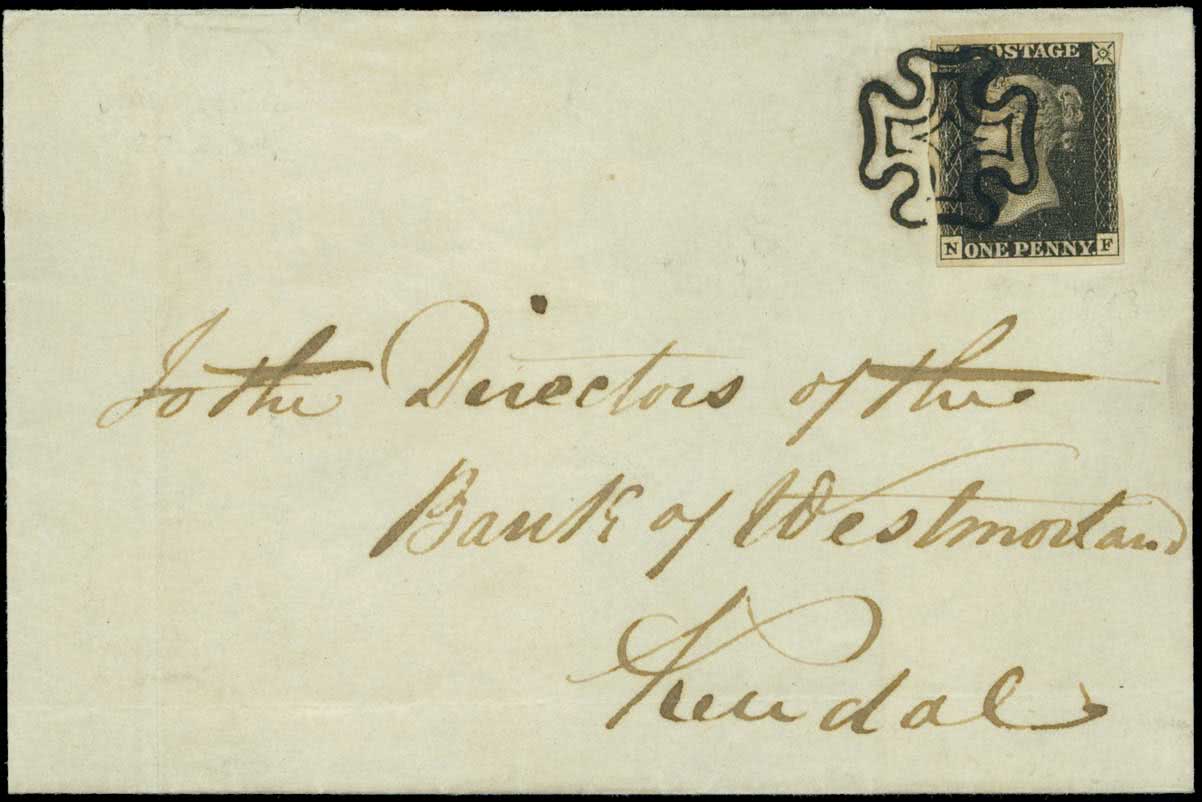 POSTAGE
N ONE PENNY. F
To the Directors of the
Bank of Westmorland
Kendal